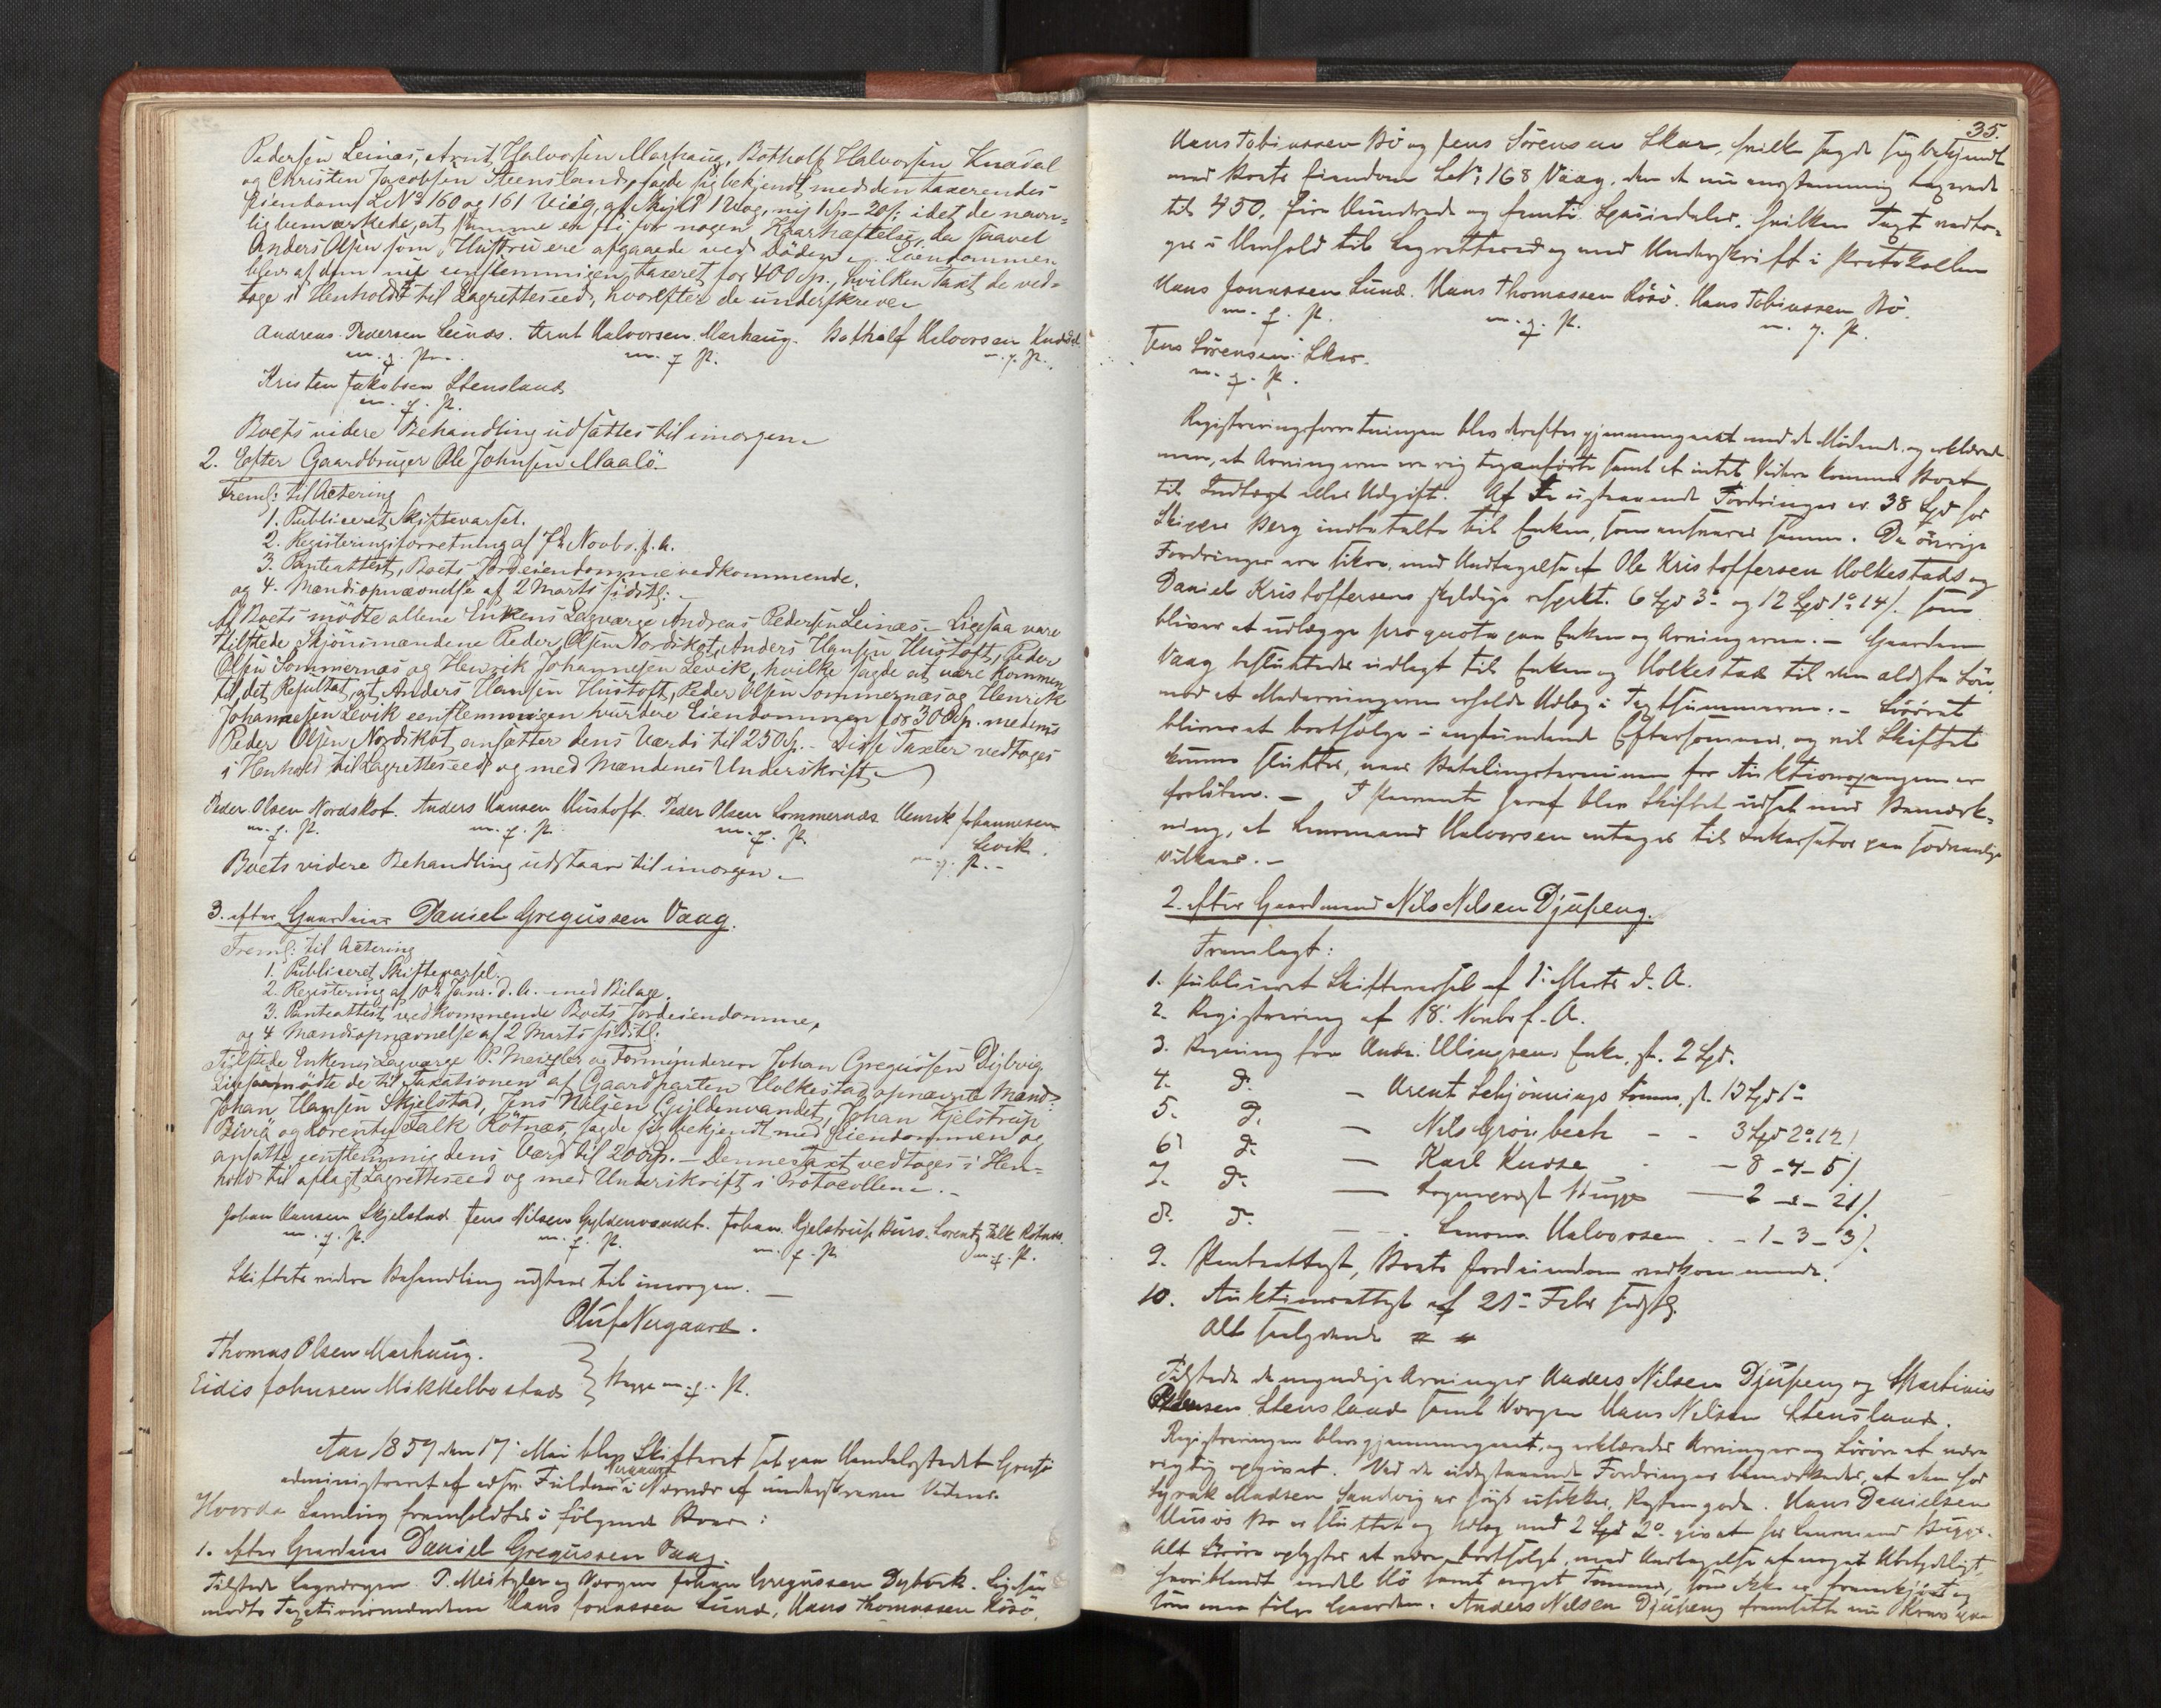 Pedersen Leinæs, Arnt Halvorsen Marhaug, Botholf Halvorsen Knædal
og Christen Jacobsen Steensland, sagde sig bekjendt med den taxerendes
Eiendom LNo 160 og 161 Viig, af Skyld 1 Vog, ny 1 Sp - 20 s; idet de navn-
lig bemærkede, at samme er fri for nogen Kaarhæftelse, da saavel
Anders Olsen som Hustru ere afgaaede ved Døden og Eiendommen
blev af dem nu eenstemmigen taxeret for 400 Sp., hvilken Taxt de ved-
toge i Henhold til Lagretteseed, hvorefter de underskrever
Andreas Pedersen Leinæs. Arnt Halvorsen Marhaug. Botholf Halvorsen Knædal
m. f. P. m. f. P. m. f. P.
Kristen Jakobsen Stensland
m. f. P.
Boets videre Behandling udsattes til imorgen.
2. Efter Gaardbruger Ole Johnsen Maalö
Freml: til Actering
1. Publiceret Skiftevarsel.
2. Registeringsforretning af 7de Novbr. f. A.
3. Panteattest, Boets Jordeiendomme vedkommende.
og 4. Mændsopnævnelse af 2 Marts sidstl:
Af Boets mödte allene Enkens Laugværge Andreas Pedersen Leinæs. Ligesaa vare
tilstede Skjönsmændene Peder Olsen Nordskot, Anders Hansen Hustoft, Peder
Olsen Sommernæs og Henrik Johannesen Levik, hvilke sagde at være kommen
til det Resultat, at Anders Hansen Hustoft, Peder Olsen Sommernæs og Henrik
Johannesen Levik eenstemmigen vurdere Eiendommen for 300 Sp. medens
Peder Olsen Nordskot ansætter dens Værdi til 250 Sp. - Disse Taxter vedtoges
i Henhold til Lagretteseed og med Mændenes Underskrift
Peder Olsen Nordskot. Anders Hansen Hustoft. Peder Olsen Sommernæs Henrik Johannesen
m. f. P. m. f. P. m. f. P. Levik.
Boets videre Behandling udstaar til imorgen. m. f. P.
3. efter Gaardmand Daniel Gregussen Vaag.
Freml: til Actering
1. Publiceret Skiftevarsel.
2. Registering af 10de Janr. d. A. med Bilage.
3. Panteattest vedkommende Boets Jordeiendomme.
og 4 Mændsopnævnelse af 2 Marts sidstl:
Tilstede Enkens Laugværge P. Meizler og Formynderen Johan Gregussen Dybvig
Ligesaa mödte de til Taxationen af Gaardparten Holkestad opnævnte Mænd:
Johan Hansen Skjelstad, Jens Nilsen Gyldenvandet, Johan Kjelstrup
og Lorentz Falk Rötnæs, sagde sig bekjendt med Eiendommen og
ansatte eenstemmig dens Værd til 200 Sp. - Denne Taxt vedtoges i Hen-
hold til aflagt Lagretteseed og med Underskrift i Protocollen. -
Johan Hansen Skjelstad Jens Nilsen Gyldenvandet. Johan Kjelstrup Lorentz Falk Rötnæs.
m. f. P. m. f. P. m. f. P. m. f. P.
Skiftets videre Behandling udstaar til imorgen.
Oluf Neergaard.
Thomas Olsen Marhaug.
Eidis Johnsen Mikkelbostad } Begge m. f. P.
Aar 1859 den 17: Mai blev Skifteret sat paa Handelsstedet Grötö
administreret af Fuldm: Neergaard i Nærvær af underskrevne Vidner.
Hvorda Samling fremholdtes i følgende Boer:
1. efter Gaardmand Daniel Gregussen Vaag.
Tilstede Laugværgen P. Meitzler og Værgen Johan Gregussen Dybvik. Ligesaa
mödte Taxationsmændene Hans Jonassen Lund, Hans Thomassen Rösö,
35.
Hans Tobiassen Bö og Jens Sörensen Skar, hvilke sagde sig bekjendt
med Boets Eiendom LNo: 168 Vaag, den de nu eenstemmig taxerede
til 450, fire Hundrede og femti Speciedaler, hvilken Taxt vedto-
ges i Henhold til Lagretteeed og med Underskrift i Protokollen
Hans Jonassen Lund. Hans Thomassen Rösö. Hans Tobiassen Bö.
m. f. P. m. f. P. m. f. P.
Jens Sörensen Skar.
m. f. P.
Registreringsforretningen blev derefter gjennemgaaet med de Mödende, og erklærede
man, at Arvingerne ere rigtig anførte samt at intet Videre kommer Boet
til Indtægt eller Udgift. Af De udstaaende Fordringer er 38 Spd hos
Skipper Berg indbetalte til Enken, som ansvarer samme. De övrige
Fordringer ere sikre, med Undtagelse af Ole Kristoffersen Holkestads og
Daniel Kristoffersens skyldige respekt. 6 Spd 3o og 12 Spd 1o 14 s. som
bliver at udlægge pro quota paa Enken og Arvingerne. - Gaarden
Vaag besluttedes udlagt til Enken og Holkestad til den ældste Sön,
mod at Medarvingerne erholde Udlæg i Taxtsummerne. - Lösöret
bliver at bortsælge i anstundende Eftersommer, og vil Skiftet
kunne sluttes, naar Betalingsterminen for Auktionspengene er
forlöben. - I Paavente heraf blev Skiftet udsat med Bemærk-
ning, at Lensmand Halvorsen antages til Inkassator paa sædvanlige
Vilkaar. -
2. efter Gaardmand Nils Nilsen Djupeng.
Fremlagt:
1. Publiceret Skiftevarsel af 1: Marts d. A.
2. Registrering af 18: Novbr f. A.
3. Regning fra Andr: Ellingsens Enke, st. 2 Spd.
4. D. - Arent Schjönnings st. 13 Spd 1o
5. D. - Nils Grönbech - - 3 Spd 2o 12 s
6. D. - Karl - 8 - 4 - 5 s.
7. D. - Sogneprest Bugge - 2 - - 21 s.
8. D. - Lensm. Halvorsen - 1 - 3 - 3 s.
9. Panteattest, Boets Jordeiendom vedkommende.
10. Auktionsattest af 21de Febr sidstl.
Alt saalydende
Tilstede de myndige Arvinger Anders Nilsen Djupeng og Martinus
Stensland samt Værgen Hans Nilsen Stensland.
Registreringen blev gjennemgaaet, og erklæredes Arvinger og Lösöre at være
rigtig opgivet. Ved de udestaaende Fordringer bemærkedes, at den hos
Madsen Sandvig er höist usikker, Resten gode. Hans Danielsen
Bo er sluttet og Udlæg med 2 Spd 2o givet hos Lensmand Bugge.
Alt Lösöre oplystes at være bortsolgt, med Undtagelse af noget Ubetydeligt,
hvoriblandt endel Hö samt noget Tömmer, som ikke er fremkjört og
som maa fölge Gaarden. Anders Nilsen Djupeng fremsatte nu Krav paa